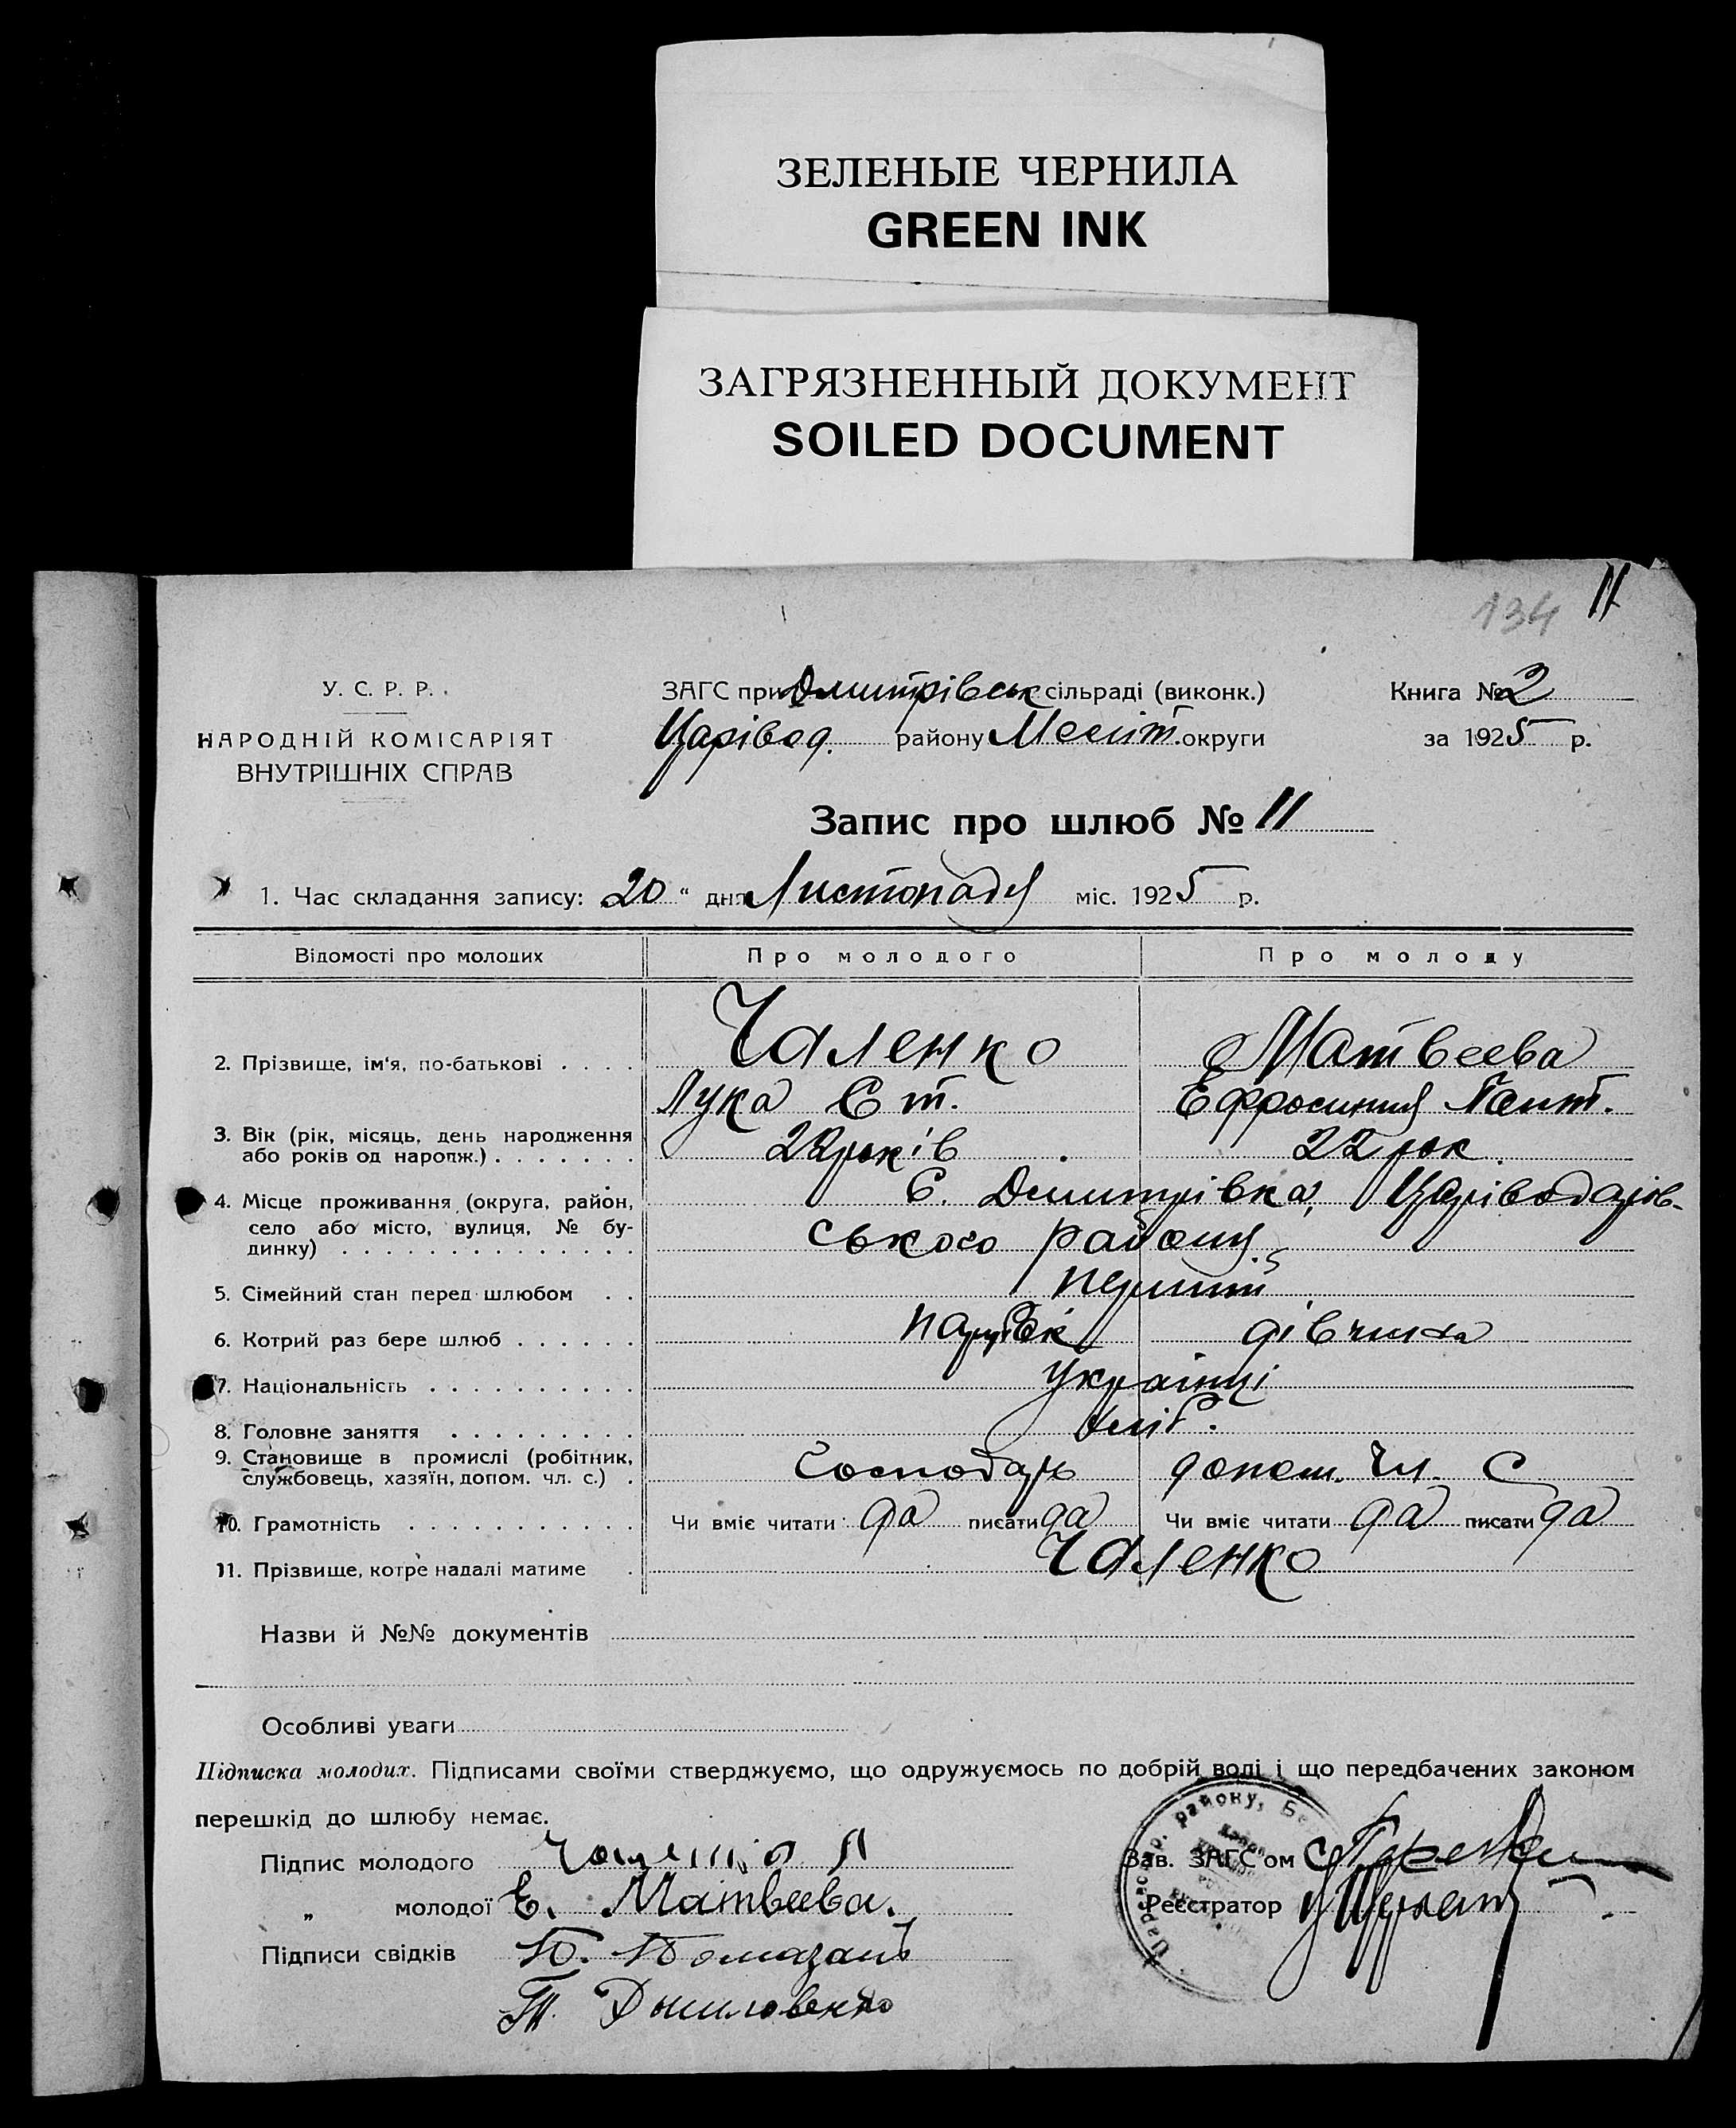 ЗЕЛЕНЫЕ ЧЕРНИЛА
GREEN INK
ЗАГРЯЗНЕННЫЙ ДОКУМЕНТ
SOILED DOCUMENT
134 11
У. С. Р. Р.
НАРОДНІЙ КОМІСАРІЯТ
ВНУТРІШНІХ СПРАВ
ЗАГС при Дмитрівськ сільраді (виконк.)
Царівод. району Меліт. округи
Книга № 2
за 1925 р.
Запис про шлюб № 11
1. Час складання запису: 20 " дня Листопада міс. 1925 р.
Відомості про молодих Про молодого Про молоду
2. Прізвище, ім'я, по-батькові Чаленко Матвеева
Лука Ст. Ефросиния Пант.
3. Вік (рік, місяць, день народження або років од народж.) 22 років 22 рок.
4. Місце проживання (округа, район, село або місто, вулиця, № будинку) С. Дмитрівка, Царіводарів-
ського району
5. Сімейний стан перед шлюбом перший
6. Котрий раз бере шлюб парубок дівчина
7. Національність Українці
8. Головне заняття хліб.
9. Становище в промислі (робітник, службовець, хазяїн, допом. чл. с.) Господарь допом. Чл. С
10. Грамотність Чи вміє читати да писати да Чи вміє читати да писати да
11. Прізвище, котре надалі матиме Чаленко
Назви й №№ документів
Особливі уваги
Підписка молодих. Підписами своїми стверджуємо, що одружуємось по добрій волі і що передбачених законом
перешкід до шлюбу немає.
Підпис молодого
Зав. ЗАГС'ом
" молодої Е. Матвеева.
Реєстратор
Підписи свідків П. Помазанъ
району, Бе